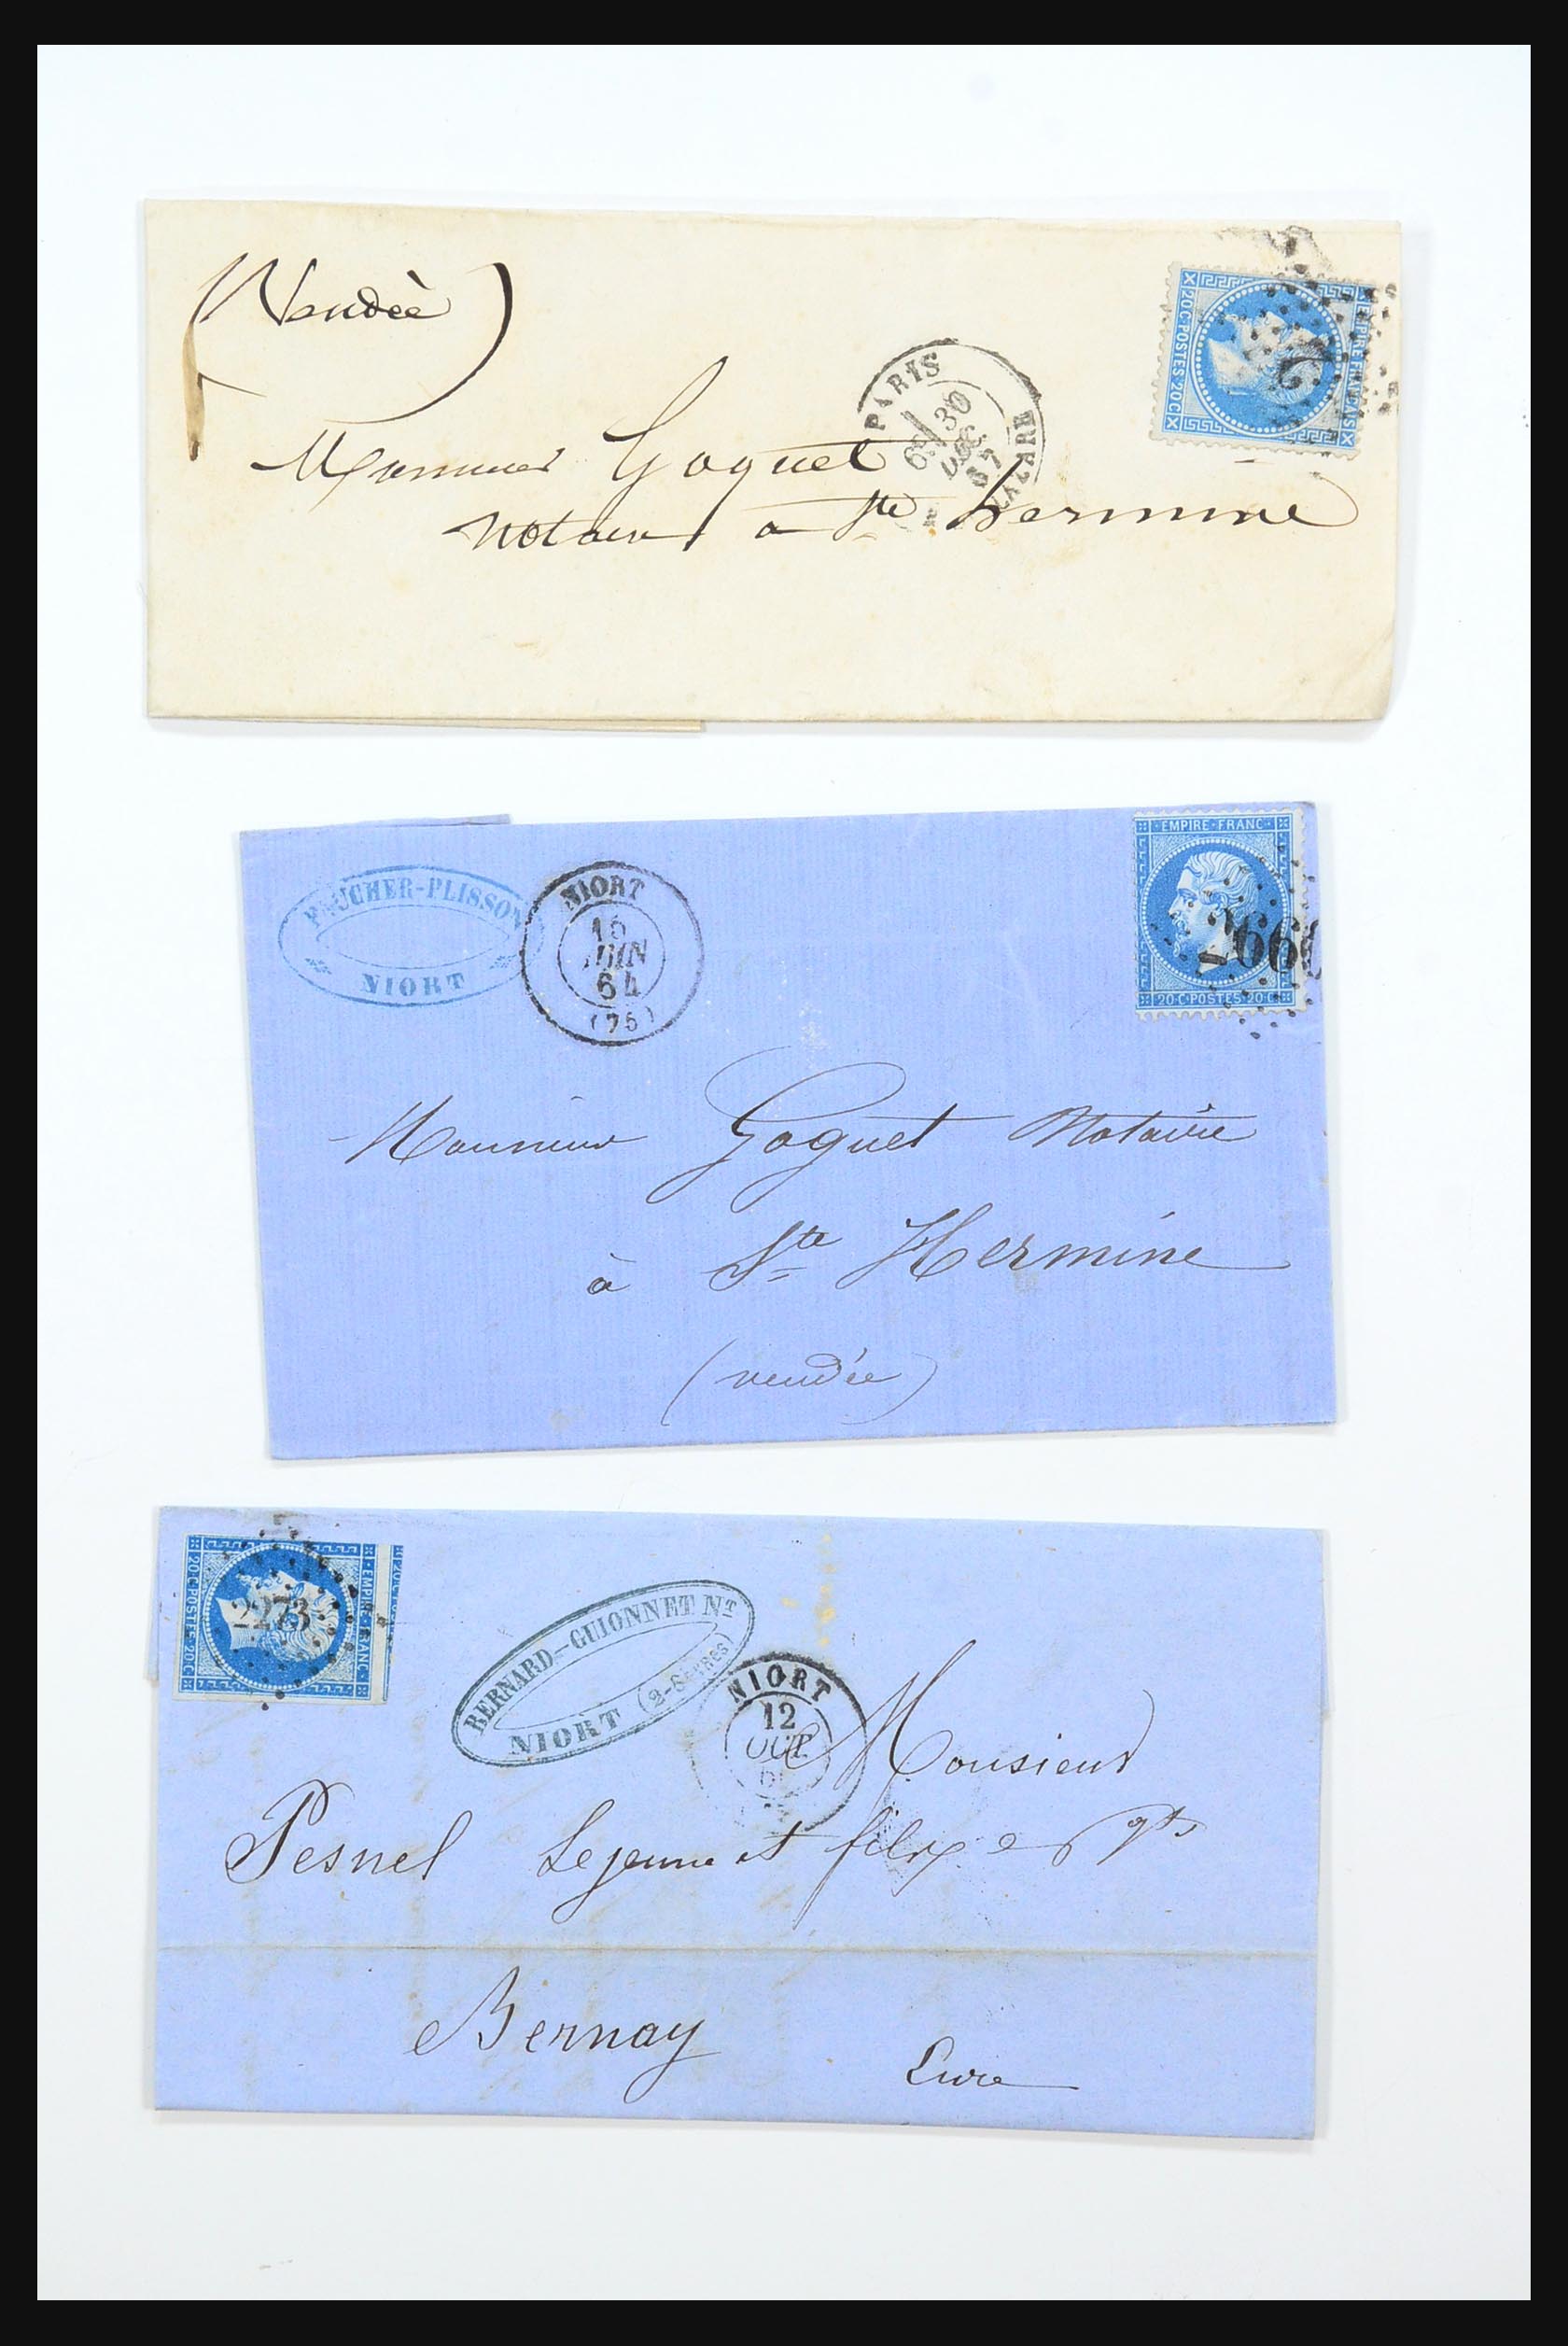 (Vendée)
EMPIRE FRANÇAIS
20 C POSTES 20 C
2
PARIS
6E/30
DEC
67
LAZARE
Monsieur Goguet
Notaire à Ste hermine
FAUCHER-PLISSON
NIORT
NIORT
16
JUIN
64
(75)
EMPIRE·FRANC·
266
20·C·POSTES·20·C
Monsieur Goguet Notaire
à Ste Hermine
(vendée)
20·C·POSTES·20·C
2273
·EMPIRE·FRANC·
BERNARD-GUIONNET NT
NIORT (2-Sèvres)
NIORT
12
OCT
Monsieur
Pesnel Lejeune et fils
Bernay
Eure